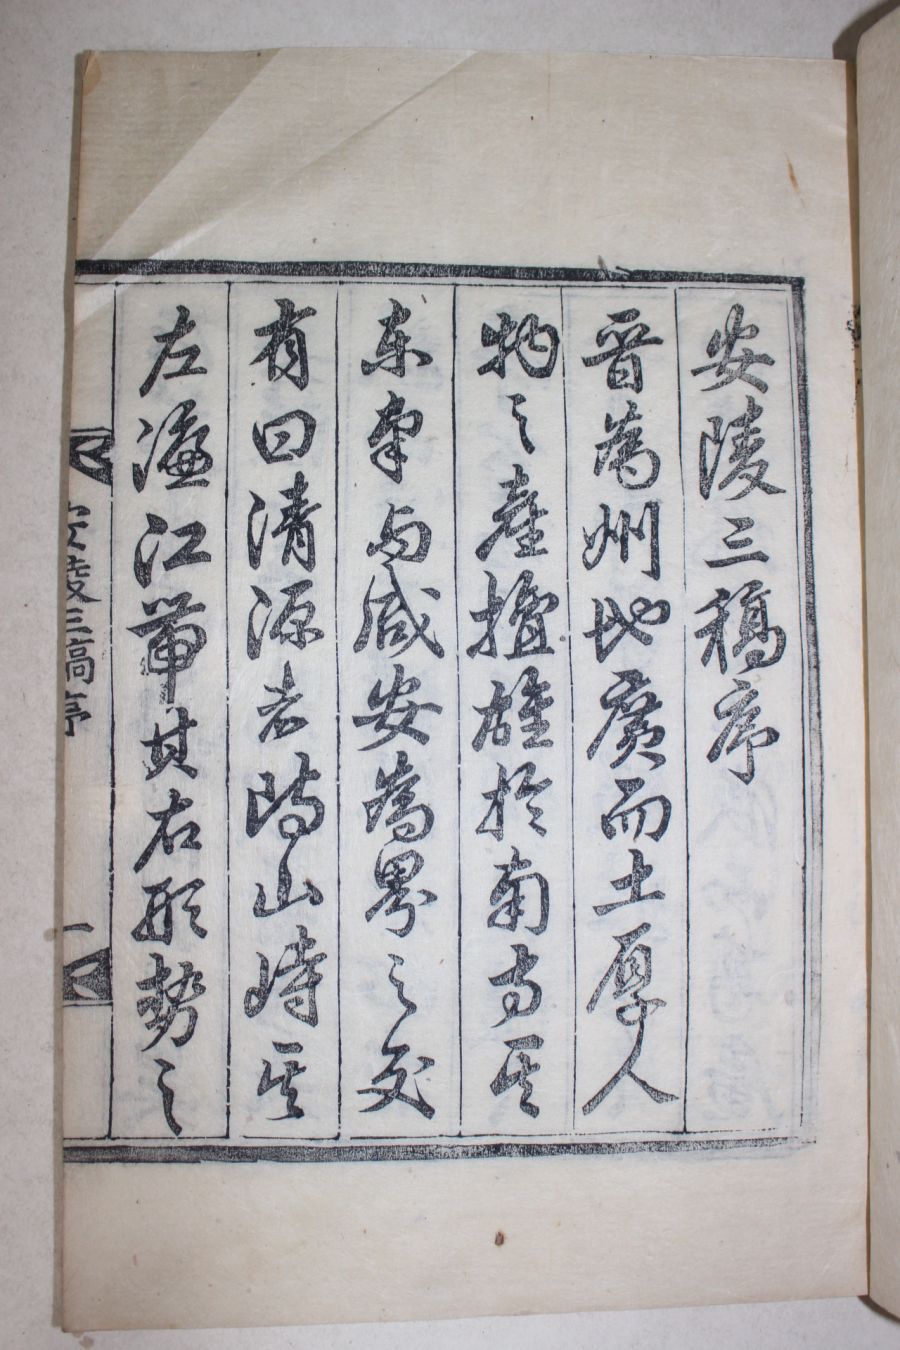 安陵三稿序
晋為州地廣而土厚人
物之産擅雄於南方其
東南与咸安為界之交
有曰清源者防山峙其
左濂江帶其右形勢之
安陵三稿序
一